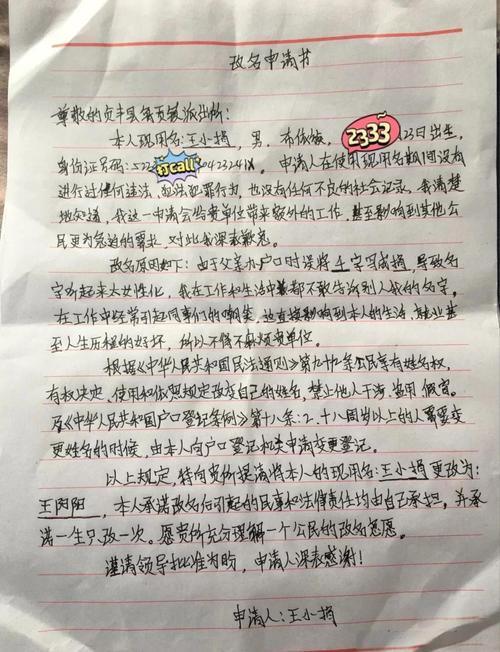 改名申请书
尊敬的贞丰县鲁贡镇派出所:
本人现用名:王小捎,男,布依族,2333 23日出生,
身份证号码:522 打call 04232418。申请人在使用现用名期间没有
进行过任何违法、违法犯罪行为,也没有任何不良的社会记录。我清楚
地知道,我这一申请会给贵单位带来额外的工作,甚至影响到其他公
民更为急迫的要求,对此我深表歉意。
改名原因如下:由于父亲办户口时误将 字写成捎,导致名
字听起来太女性化,我在工作和生活中都不敢告诉别人我的名字。
在工作中经常引起同事们的嘲笑,也直接影响到本人的生活、就业甚
至人生历程的好坏,所以不得不麻烦贵单位。
根据《中华人民共和国民法通则》第九十九条公民享有姓名权,
有权决定、使用和依照规定改变自己的姓名,禁止他人干涉、盗用、假冒。
及《中华人民共和国户口登记条例》第十八条:2、十八周岁以上的人需要变
更姓名的时候,由本人向户口登记机关申请变更登记。
以上规定,特向贵所提请将本人的现用名:王小捎更改为:
王阳阳,本人承诺改名后引起的民事和法律责任均由自己承担,并承
诺一生只改一次。愿贵所充分理解一个公民的改名意愿。
谨请领导批准为盼,申请人深表感谢!
申请人:王小捎